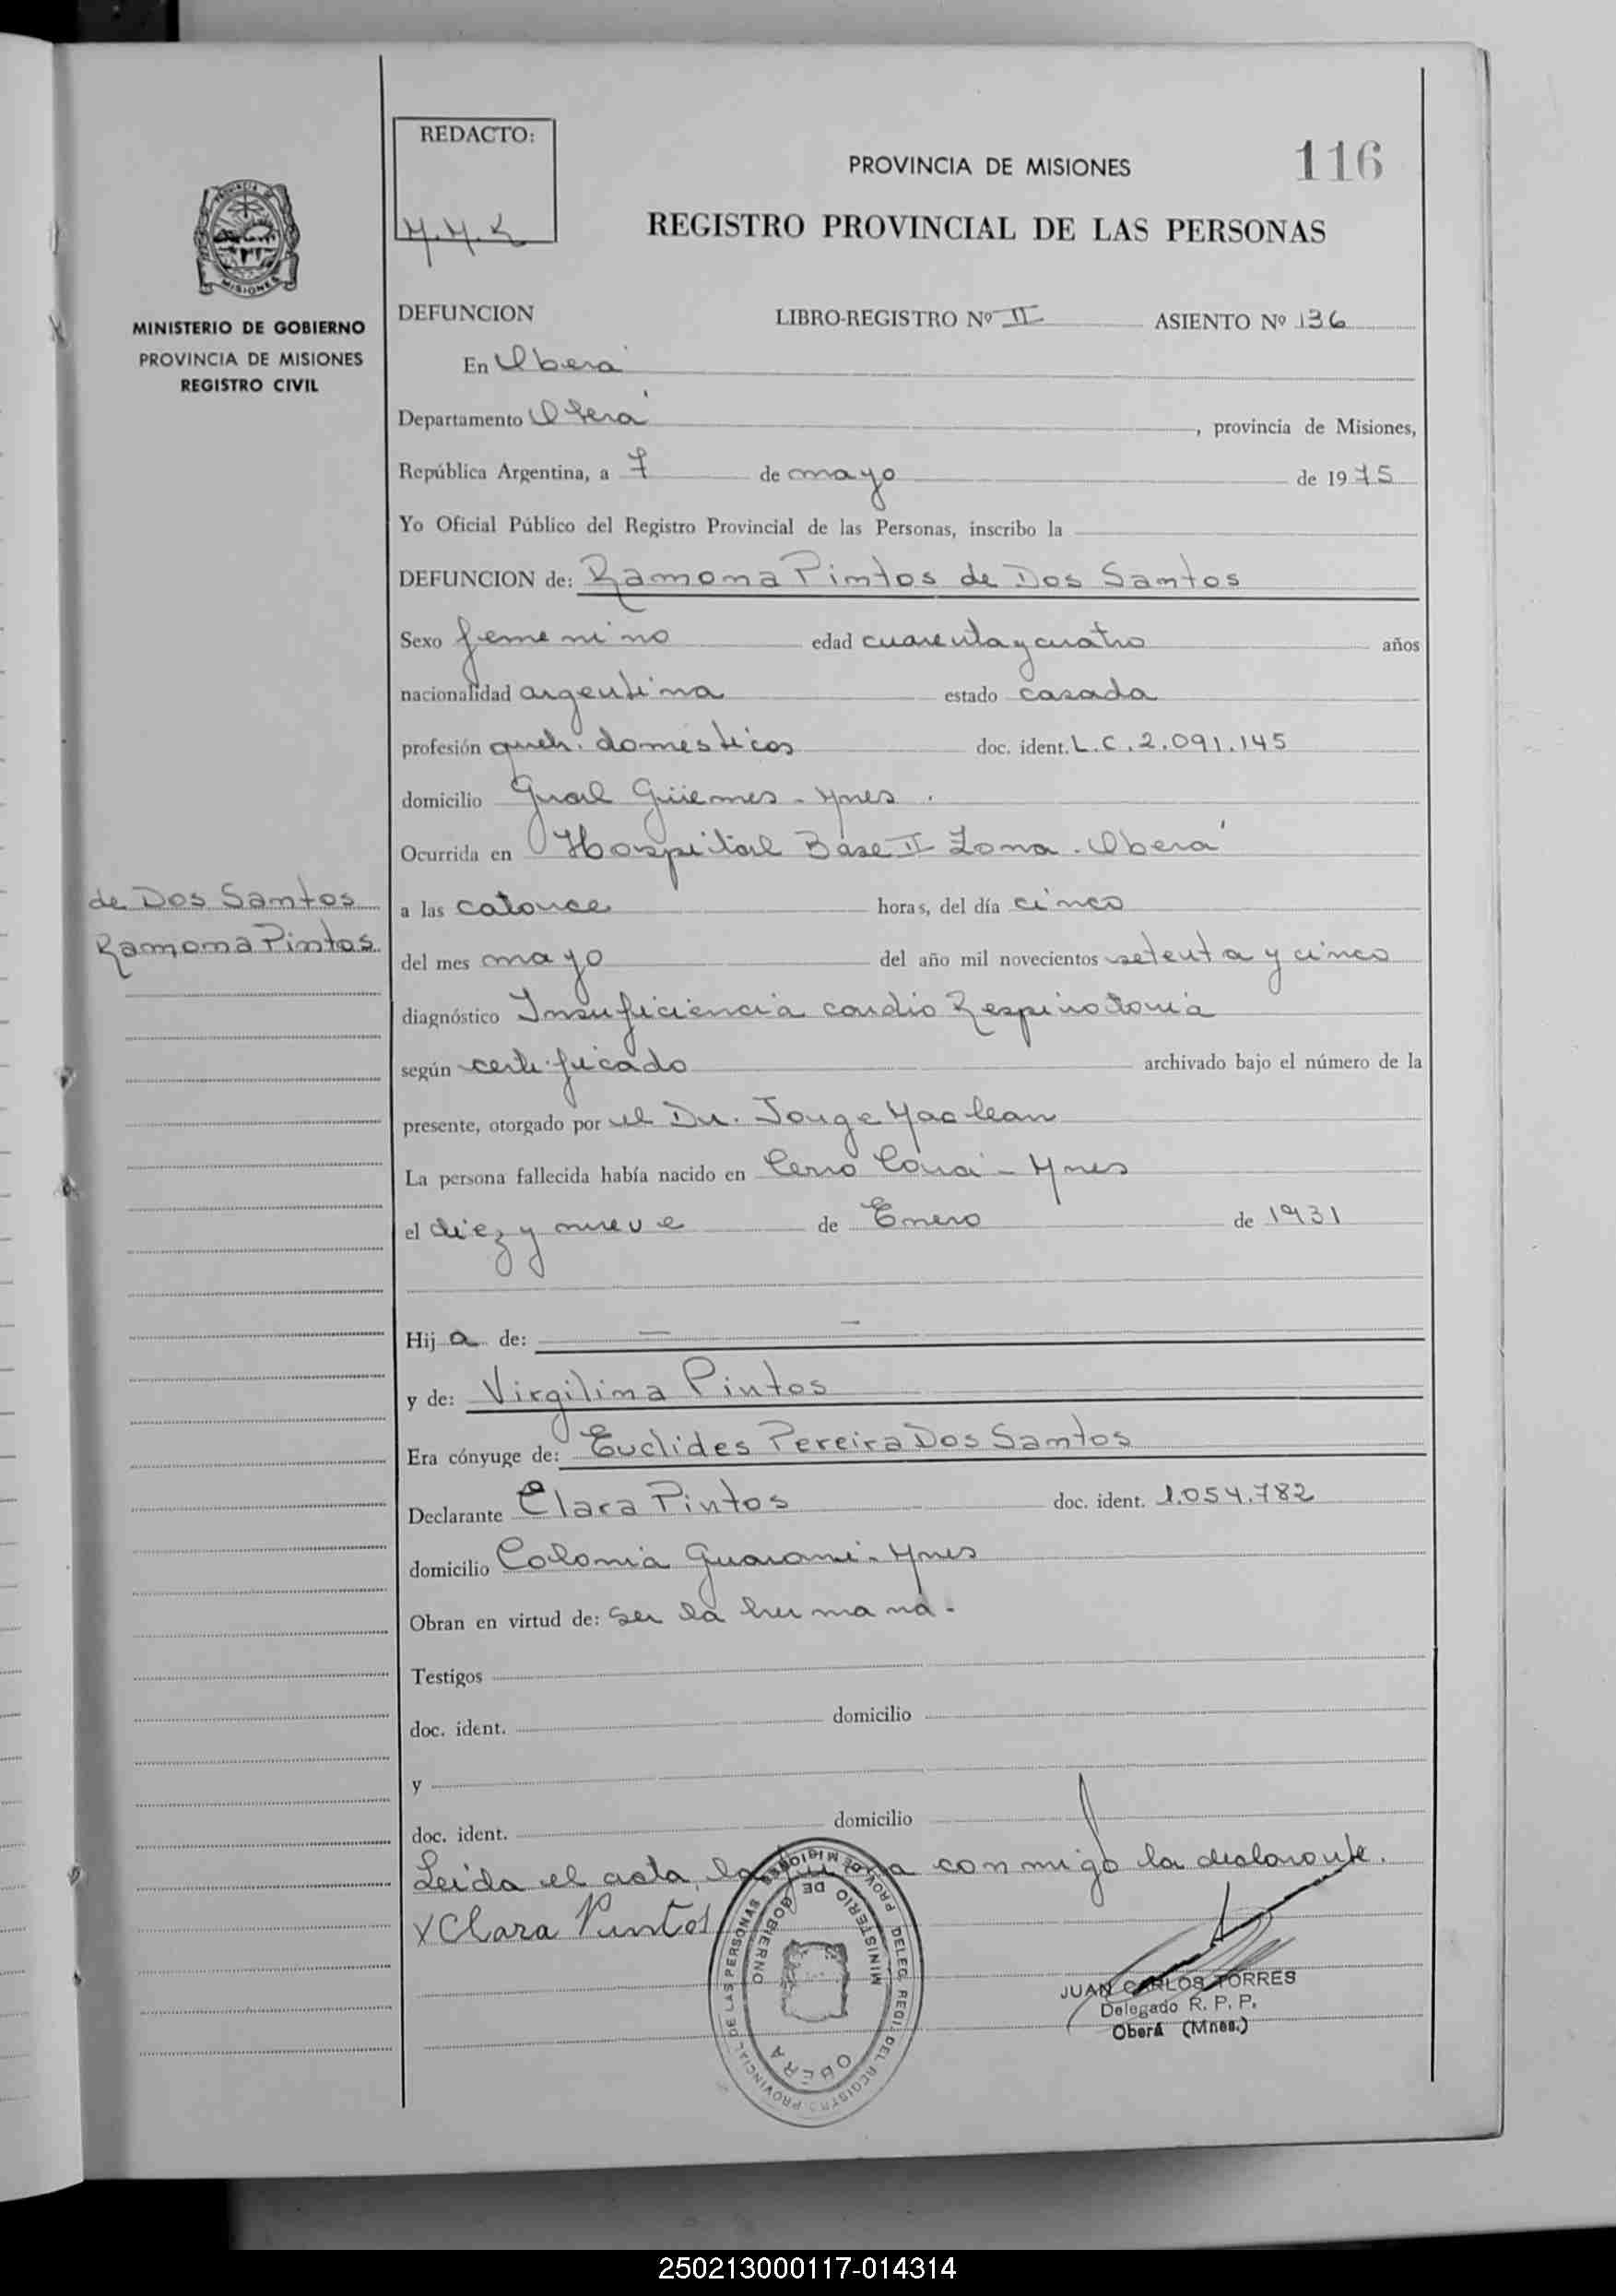 REDACTO:
M.M.K
PROVINCIA DE MISIONES
116
REGISTRO PROVINCIAL DE LAS PERSONAS
MISIONES
MINISTERIO DE GOBIERNO
PROVINCIA DE MISIONES
REGISTRO CIVIL
DEFUNCION LIBRO-REGISTRO Nº II ASIENTO Nº 136
En Oberá
Departamento Oberá, provincia de Misiones,
República Argentina, a 7 de mayo de 1975
Yo Oficial Público del Registro Provincial de las Personas, inscribo la
DEFUNCION de: Ramona Pintos de Dos Santos
Sexo femenino edad cuarenta y cuatro años
nacionalidad argentina estado casada
profesión queh. domésticos doc. ident. L.C. 2.091.145
domicilio Gral Güemes - Mnes.
Ocurrida en Hospital Base II Zona - Oberá
de Dos Santos
Ramona Pintos
a las catorce horas, del día cinco
del mes mayo del año mil novecientos setenta y cinco
diagnóstico Insuficiencia cardio Respiratoria
según certificado archivado bajo el número de la
presente, otorgado por el Dr. Jorge Maclean
La persona fallecida había nacido en Cerro Corá - Mnes
el diez y nueve de Enero de 1931
Hij a de: — —
y de: Virgilina Pintos
Era cónyuge de: Euclides Pereira Dos Santos
Declarante Clara Pintos doc. ident. 1.054.782
domicilio Colonia Guaraní - Mnes
Obran en virtud de: ser la hermana-
Testigos
doc. ident. domicilio
y
doc. ident. domicilio
Leida el acta, la firma conmigo la declarante.
X Clara Pintos
PROV. DE MISIONES DELEG. REGI. DEL REGISTRO PROVINCIAL DE LAS PERSONAS
MINISTERIO DE GOBIERNO
OBERA
JUAN CARLOS TORRES
Delegado R. P. P.
Oberá (Mnes.)
250213000117-014314